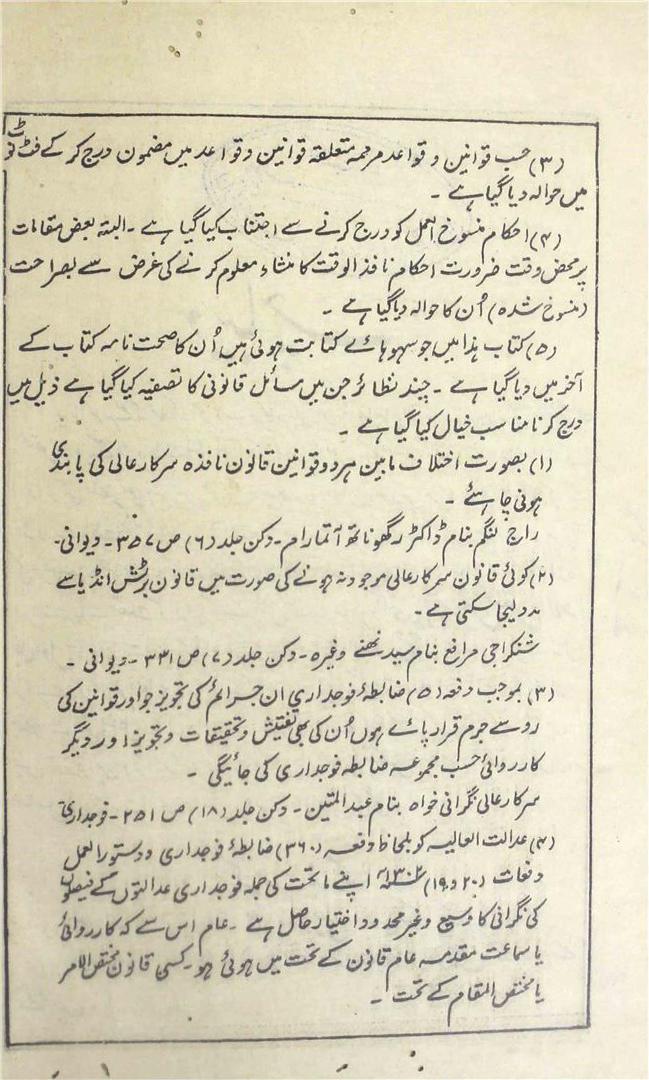 (۳) حسب قوانین و قواعد مرممہ متعلقہ قوانین و قواعد میں مضمون درج کر کے فٹ نوٹ
میں حوالہ دیا گیا ہے ۔
(۴) احکام منسوخ العمل کو درج کرنے سے اجتناب کیا گیا ہے ۔ البتہ بعض مقامات
پر محض وقت ضرورت احکام نافذ الوقت کا منشاء معلوم کرنے کی غرض سے بصراحت
(منسوخ شدہ) اُن کا حوالہ دیا گیا ہے ۔
(۵) کتاب ہذا میں جو سہو ہائے کتابت ہوئی ہیں اُن کا صحت نامہ کتاب کے
آخر میں دیا گیا ہے ۔ چند نظائر جن میں مسائل قانونی کا تصفیہ کیا گیا ہے ذیل میں
درج کرنا مناسب خیال کیا گیا ہے ۔
(۱) بصورت اختلاف مابین ہر دو قوانین قانون نافذہ سرکار عالی کی پابندی
ہونی چاہئے ۔
راج لنگم بنام ڈاکٹر رگھوناتھ آتمارام ۔ دکن جلد (۶) ص ۳۵۷ ۔ دیوانی ۔
(۲) کوئی قانون سرکار عالی موجود نہ ہونے کی صورت میں قانون برٹش انڈیا سے
مدد لیجا سکتی ہے ۔
شنکراجی مرافع بنام سید نھنے وغیرہ ۔ دکن جلد (۷) ص ۳۳۱ ۔ دیوانی ۔
(۳) بموجب دفعہ (۵) ضابطۂ فوجداری ان جرائم کی تجویز جو اور قوانین کی
رو سے جرم قرار پائے ہوں اُن کی بھی تفتیش و تحقیقات و تجویز اور دیگر
کارروائی حسب مجموعہ ضابطہ فوجداری کی جائیگی ۔
سرکار عالی نگرانی خواہ بنام عبدالمتین ۔ دکن جلد (۱۸) ص ۲۵۱ ۔ فوجداری
(۴) عدالت العالیہ کو بلحاظ دفعہ (۳۶۰) ضابطۂ فوجداری و دستور العمل
دفعات (۲۰ و ۱۹) ۱۳۰۲ اپنے ماتحت کی جملہ فوجداری عدالتوں کے فیصلوں
کی نگرانی کا وسیع و غیر محدود اختیار حاصل ہے ۔ عام اس سے کہ کارروائی
یا سماعت مقدمہ عام قانون کے تحت میں ہوئی ہو ۔ کسی قانون مختص الامر
یا مختص المقام کے تحت ۔